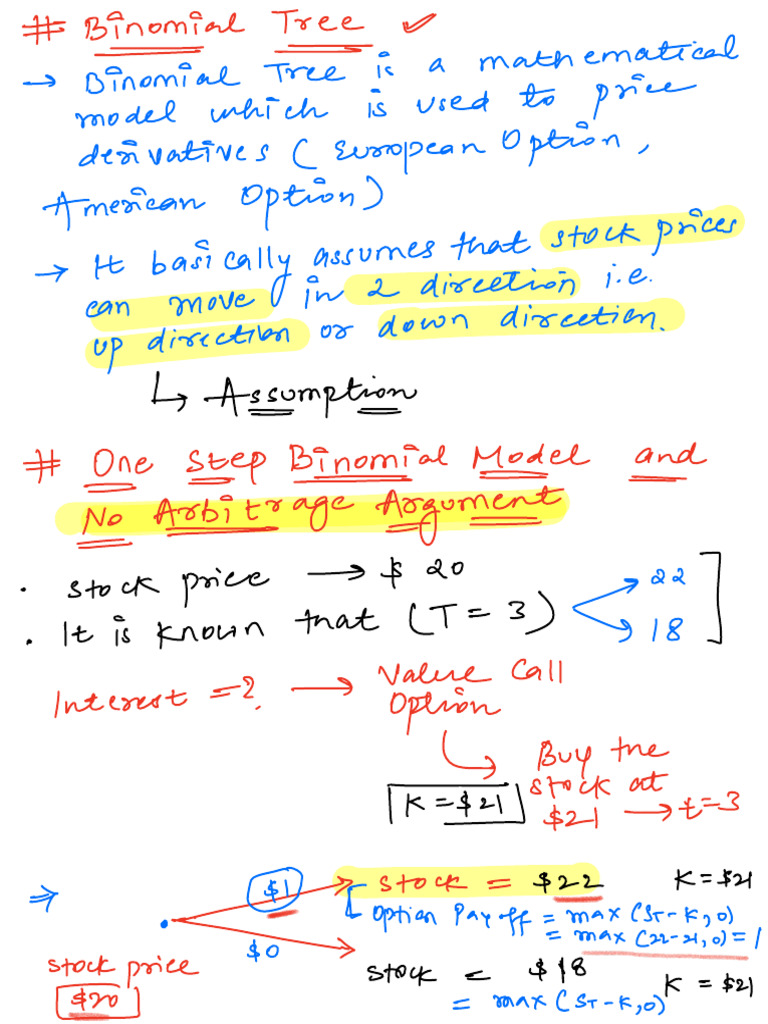 # Binomial Tree ✓
→ Binomial Tree is a mathematical
model which is used to price
derivatives (European Option,
American Option)
→ It basically assumes that stock prices
can move in 2 direction i.e.
up direction or down direction.
↳ Assumption
# One Step Binomial Model and
No Arbitrage Argument
• Stock price → $ 20
• It is known that (T = 3) 22
18
Interest = ? → Value Call
Option
Buy the
stock at
$21 → t=3
K = $21
⇒ $1 stock = $22 K = $21
Option Pay off = max (ST - K, 0)
= max (22-21, 0) = 1
$0
stock price
$20
stock = $18 K = $21
= max (ST - K, 0)